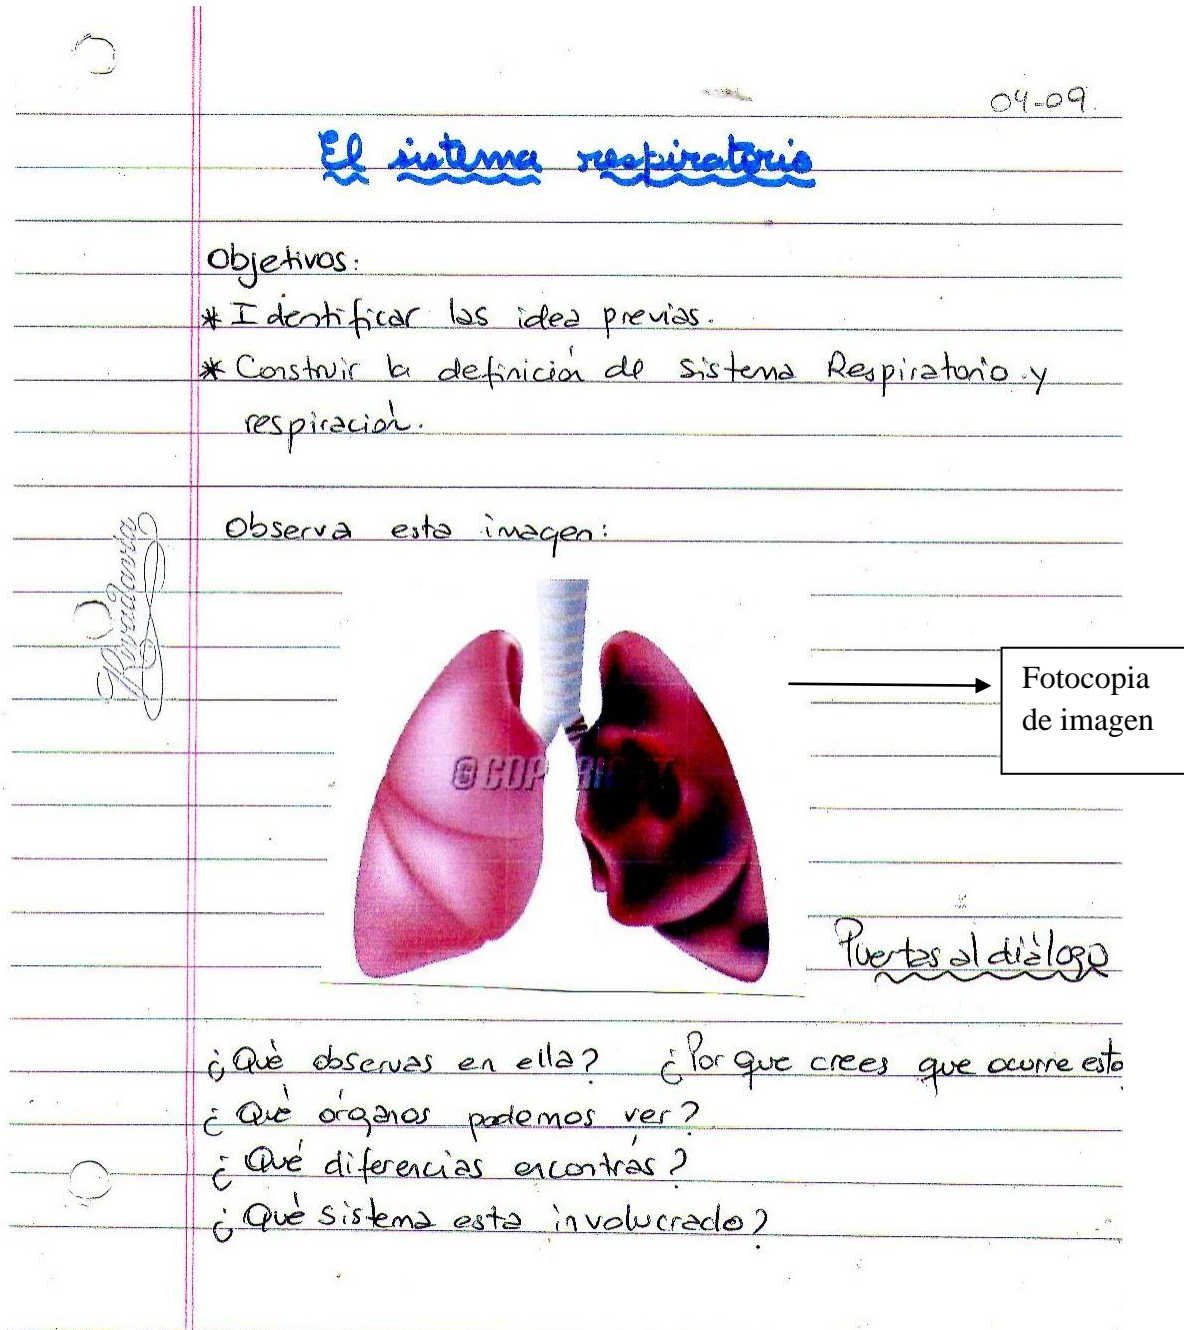 04-09.
El sistema respiratorio
Objetivos:
* Identificar las idea previas.
* Construir la definición de sistema Respiratorio y
respiración.
Rivadavia
Observa esta imagen:
Fotocopia
de imagen
©COPYRIGHT
Puertas al diálogo
¿Qué observas en ella? ¿Por que crees que ocurre esto
¿Qué órganos podemos ver?
¿Qué diferencias encontrás?
¿Qué sistema esta involucrado?